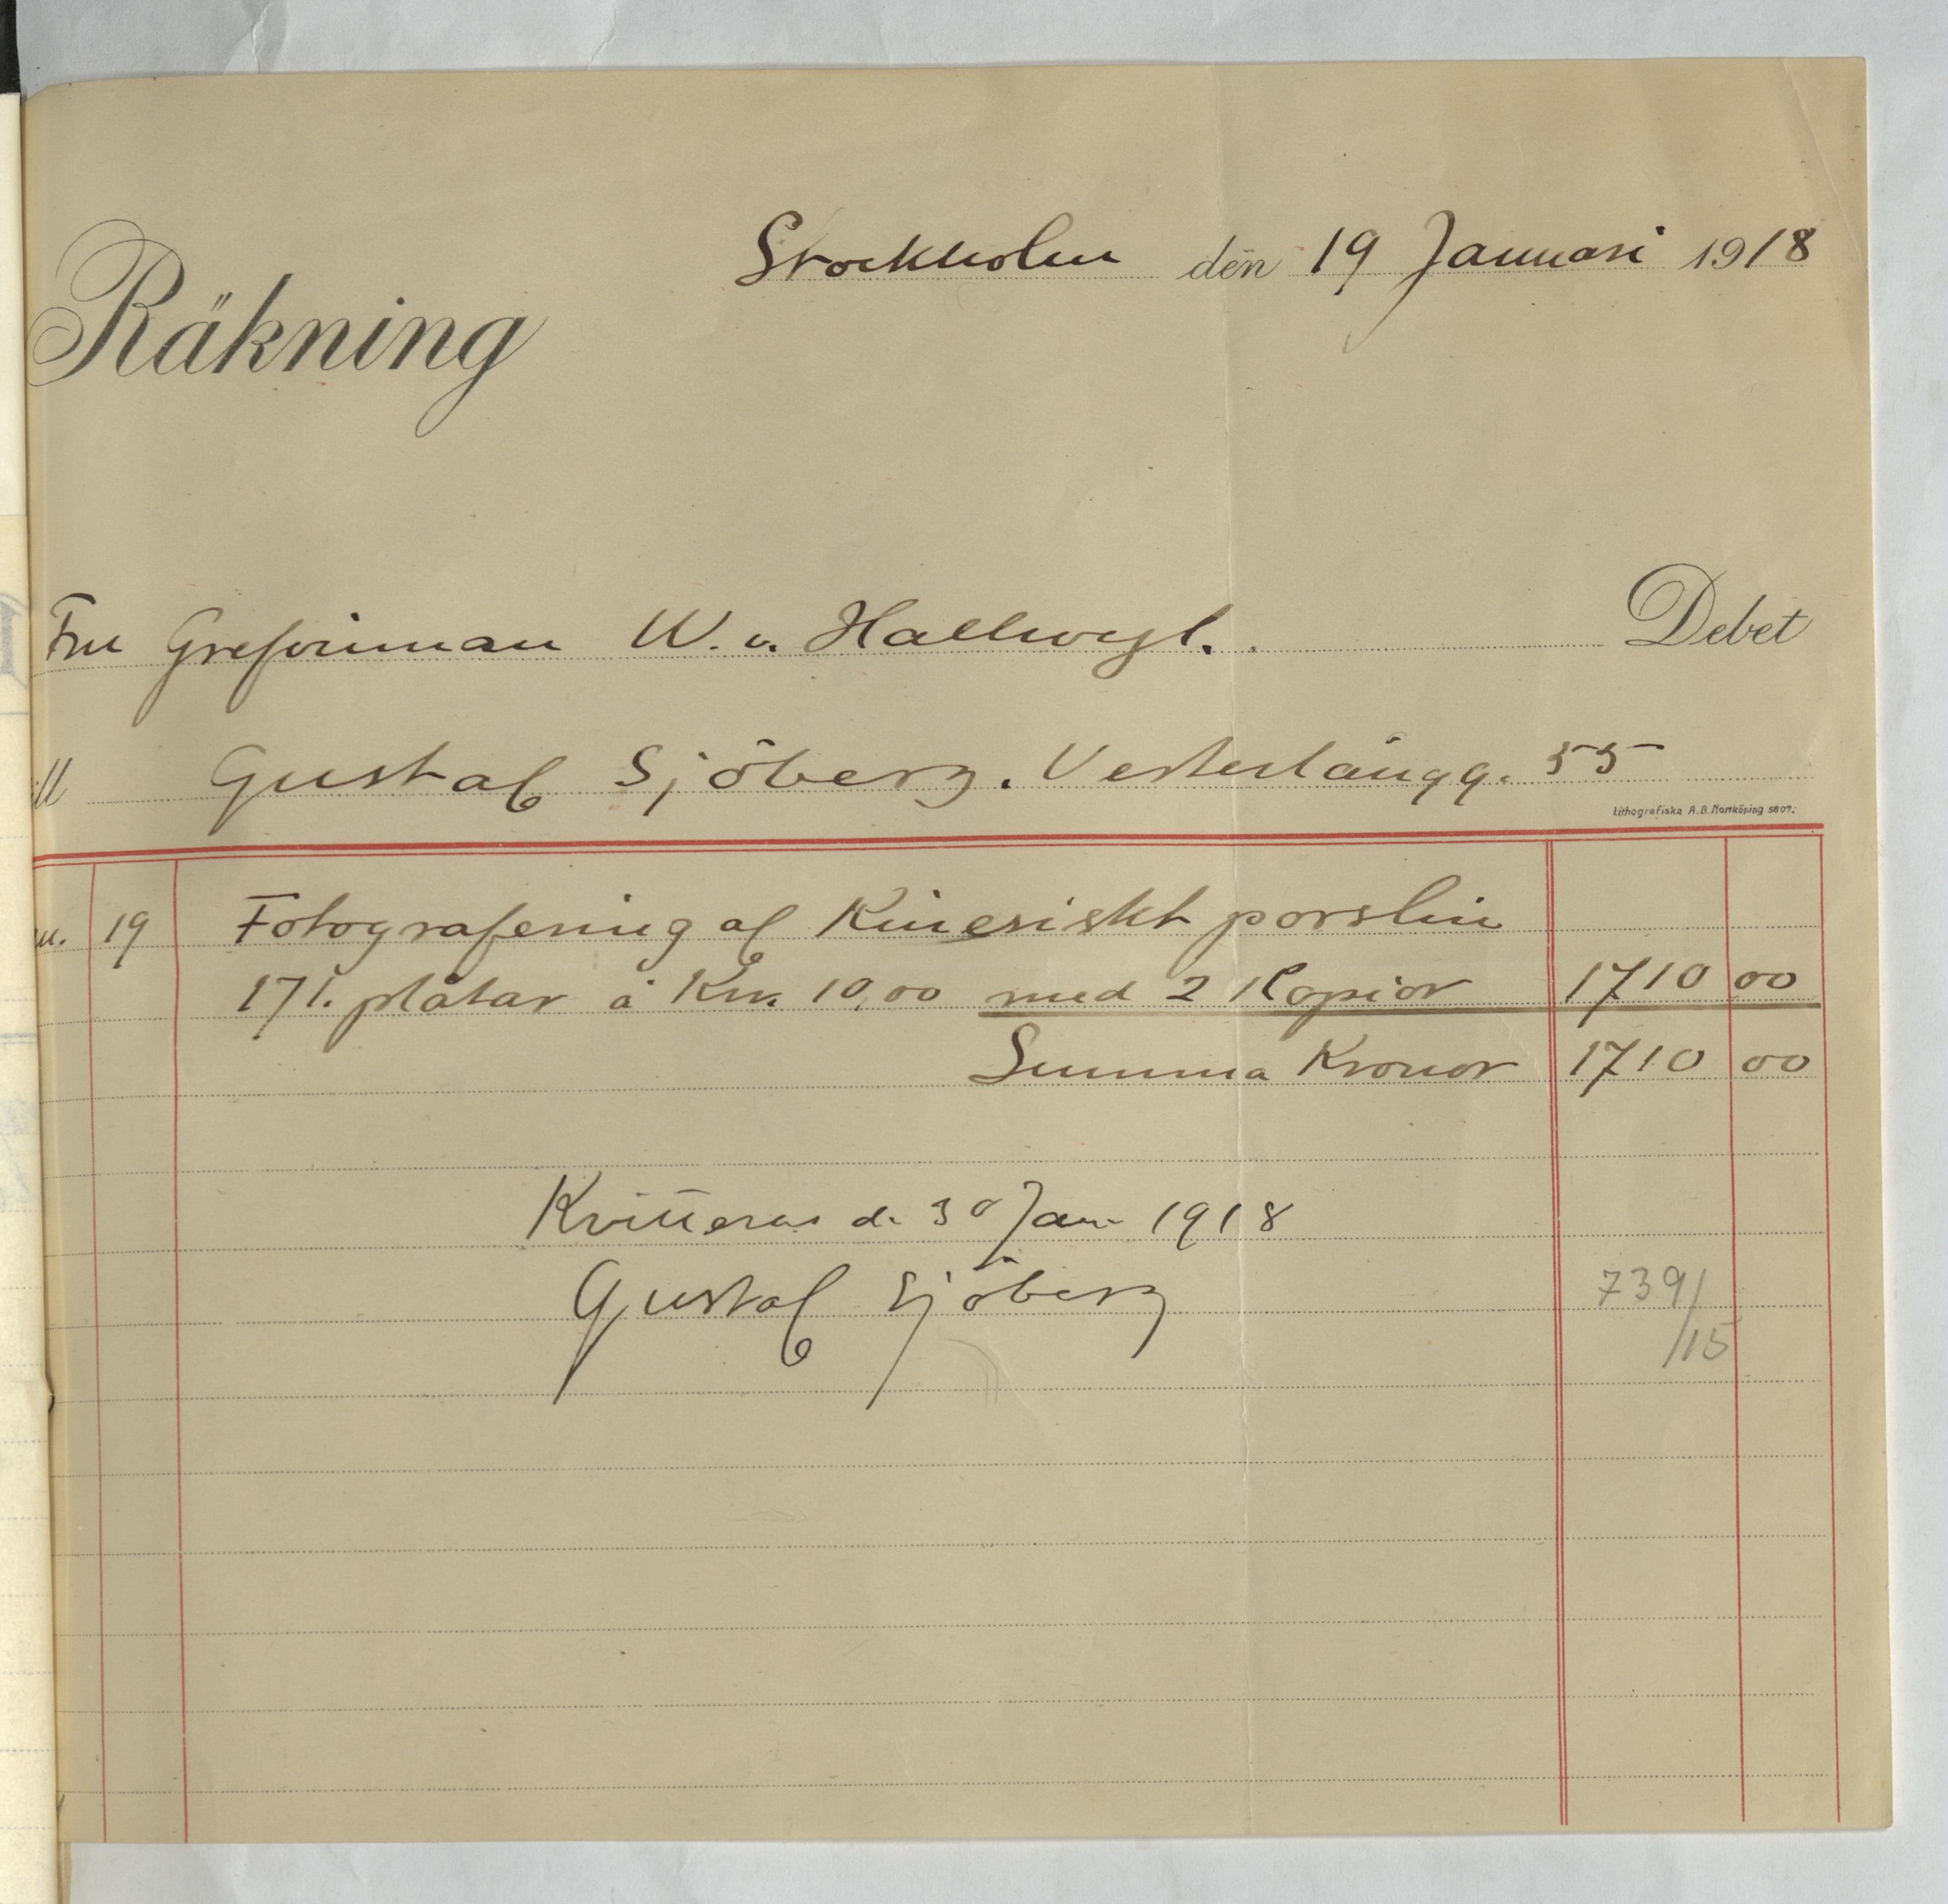 Stockholm den 19 Januari 1918
Räkning
Fru Grefvinnan W. v. Hallwyl. Debet
ill Gustaf Sjöberg. Vesterlångg. 55
Lithografiska A.B. Norrköping
19 Fotografering af Kinesiskt porslin
171. plåtar à Kr. 10,00 med 2 Kopior 1710 00
Summa Kronor 1710 00
Kvitteras d. 30 Jan. 1918
Gustaf Sjöberg
739/
/15